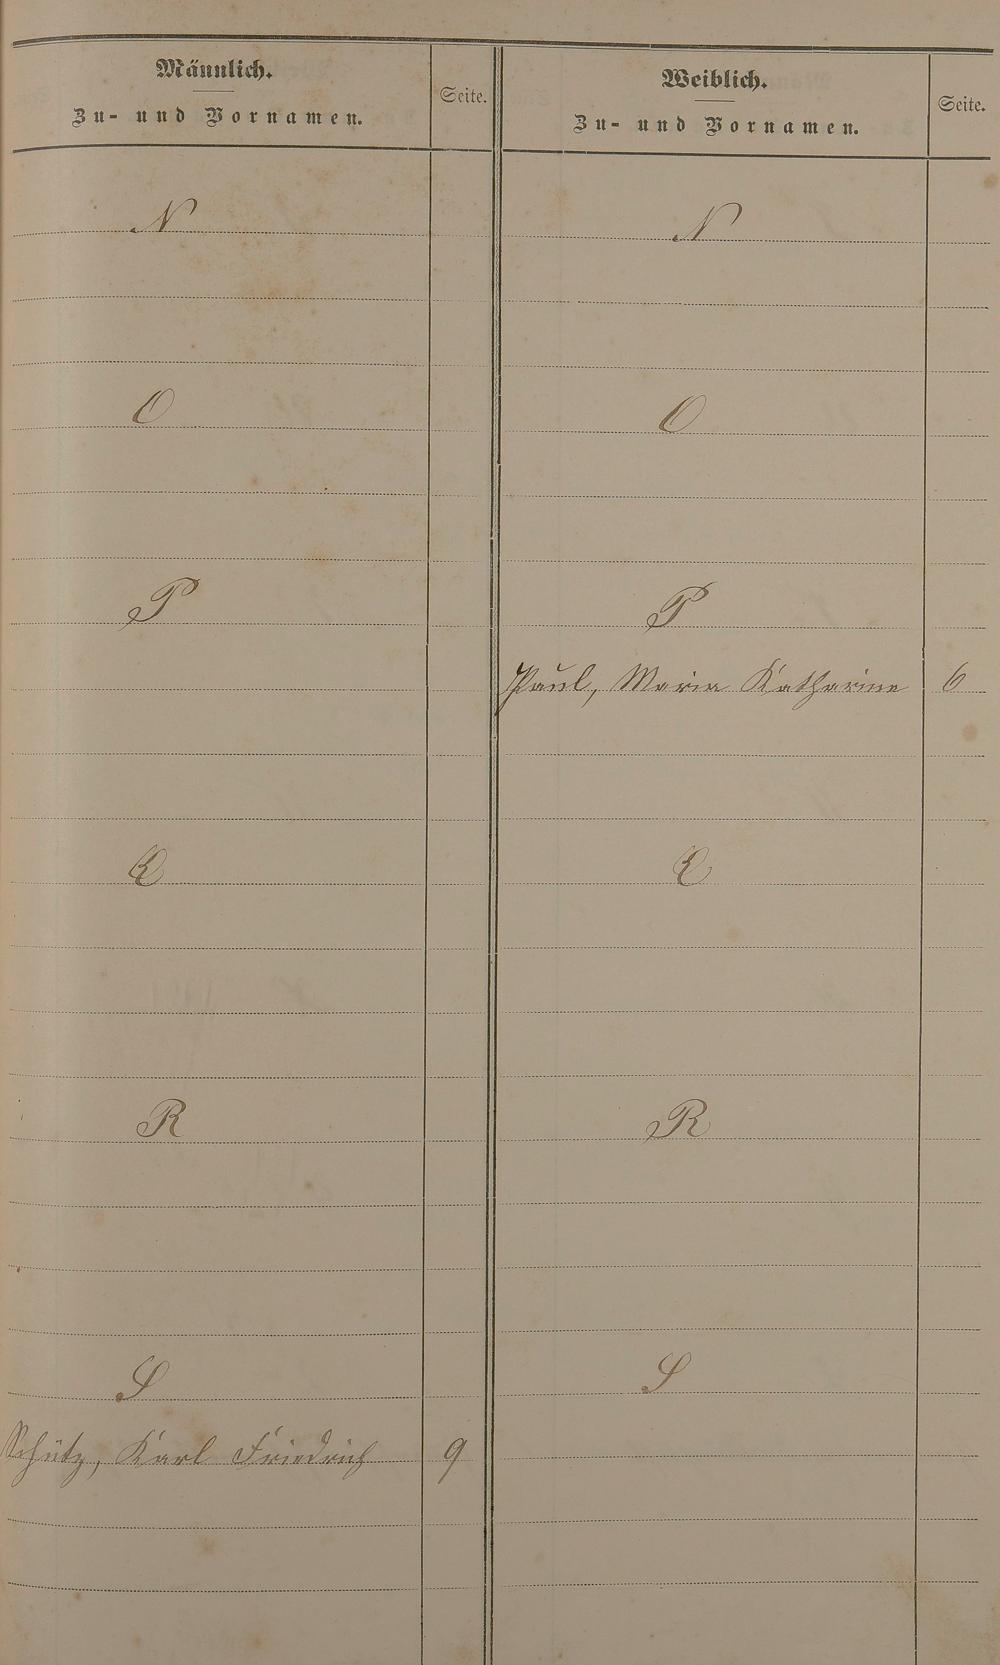 Männlich.
Zu- und Vornamen.
Seite.
Weiblich.
Zu- und Vornamen.
Seite.
N
N
O
O
P
P
Paul, Maria Katharine 6
Q
Q
R
R
S
S
Schütz, Karl Friedrich 9